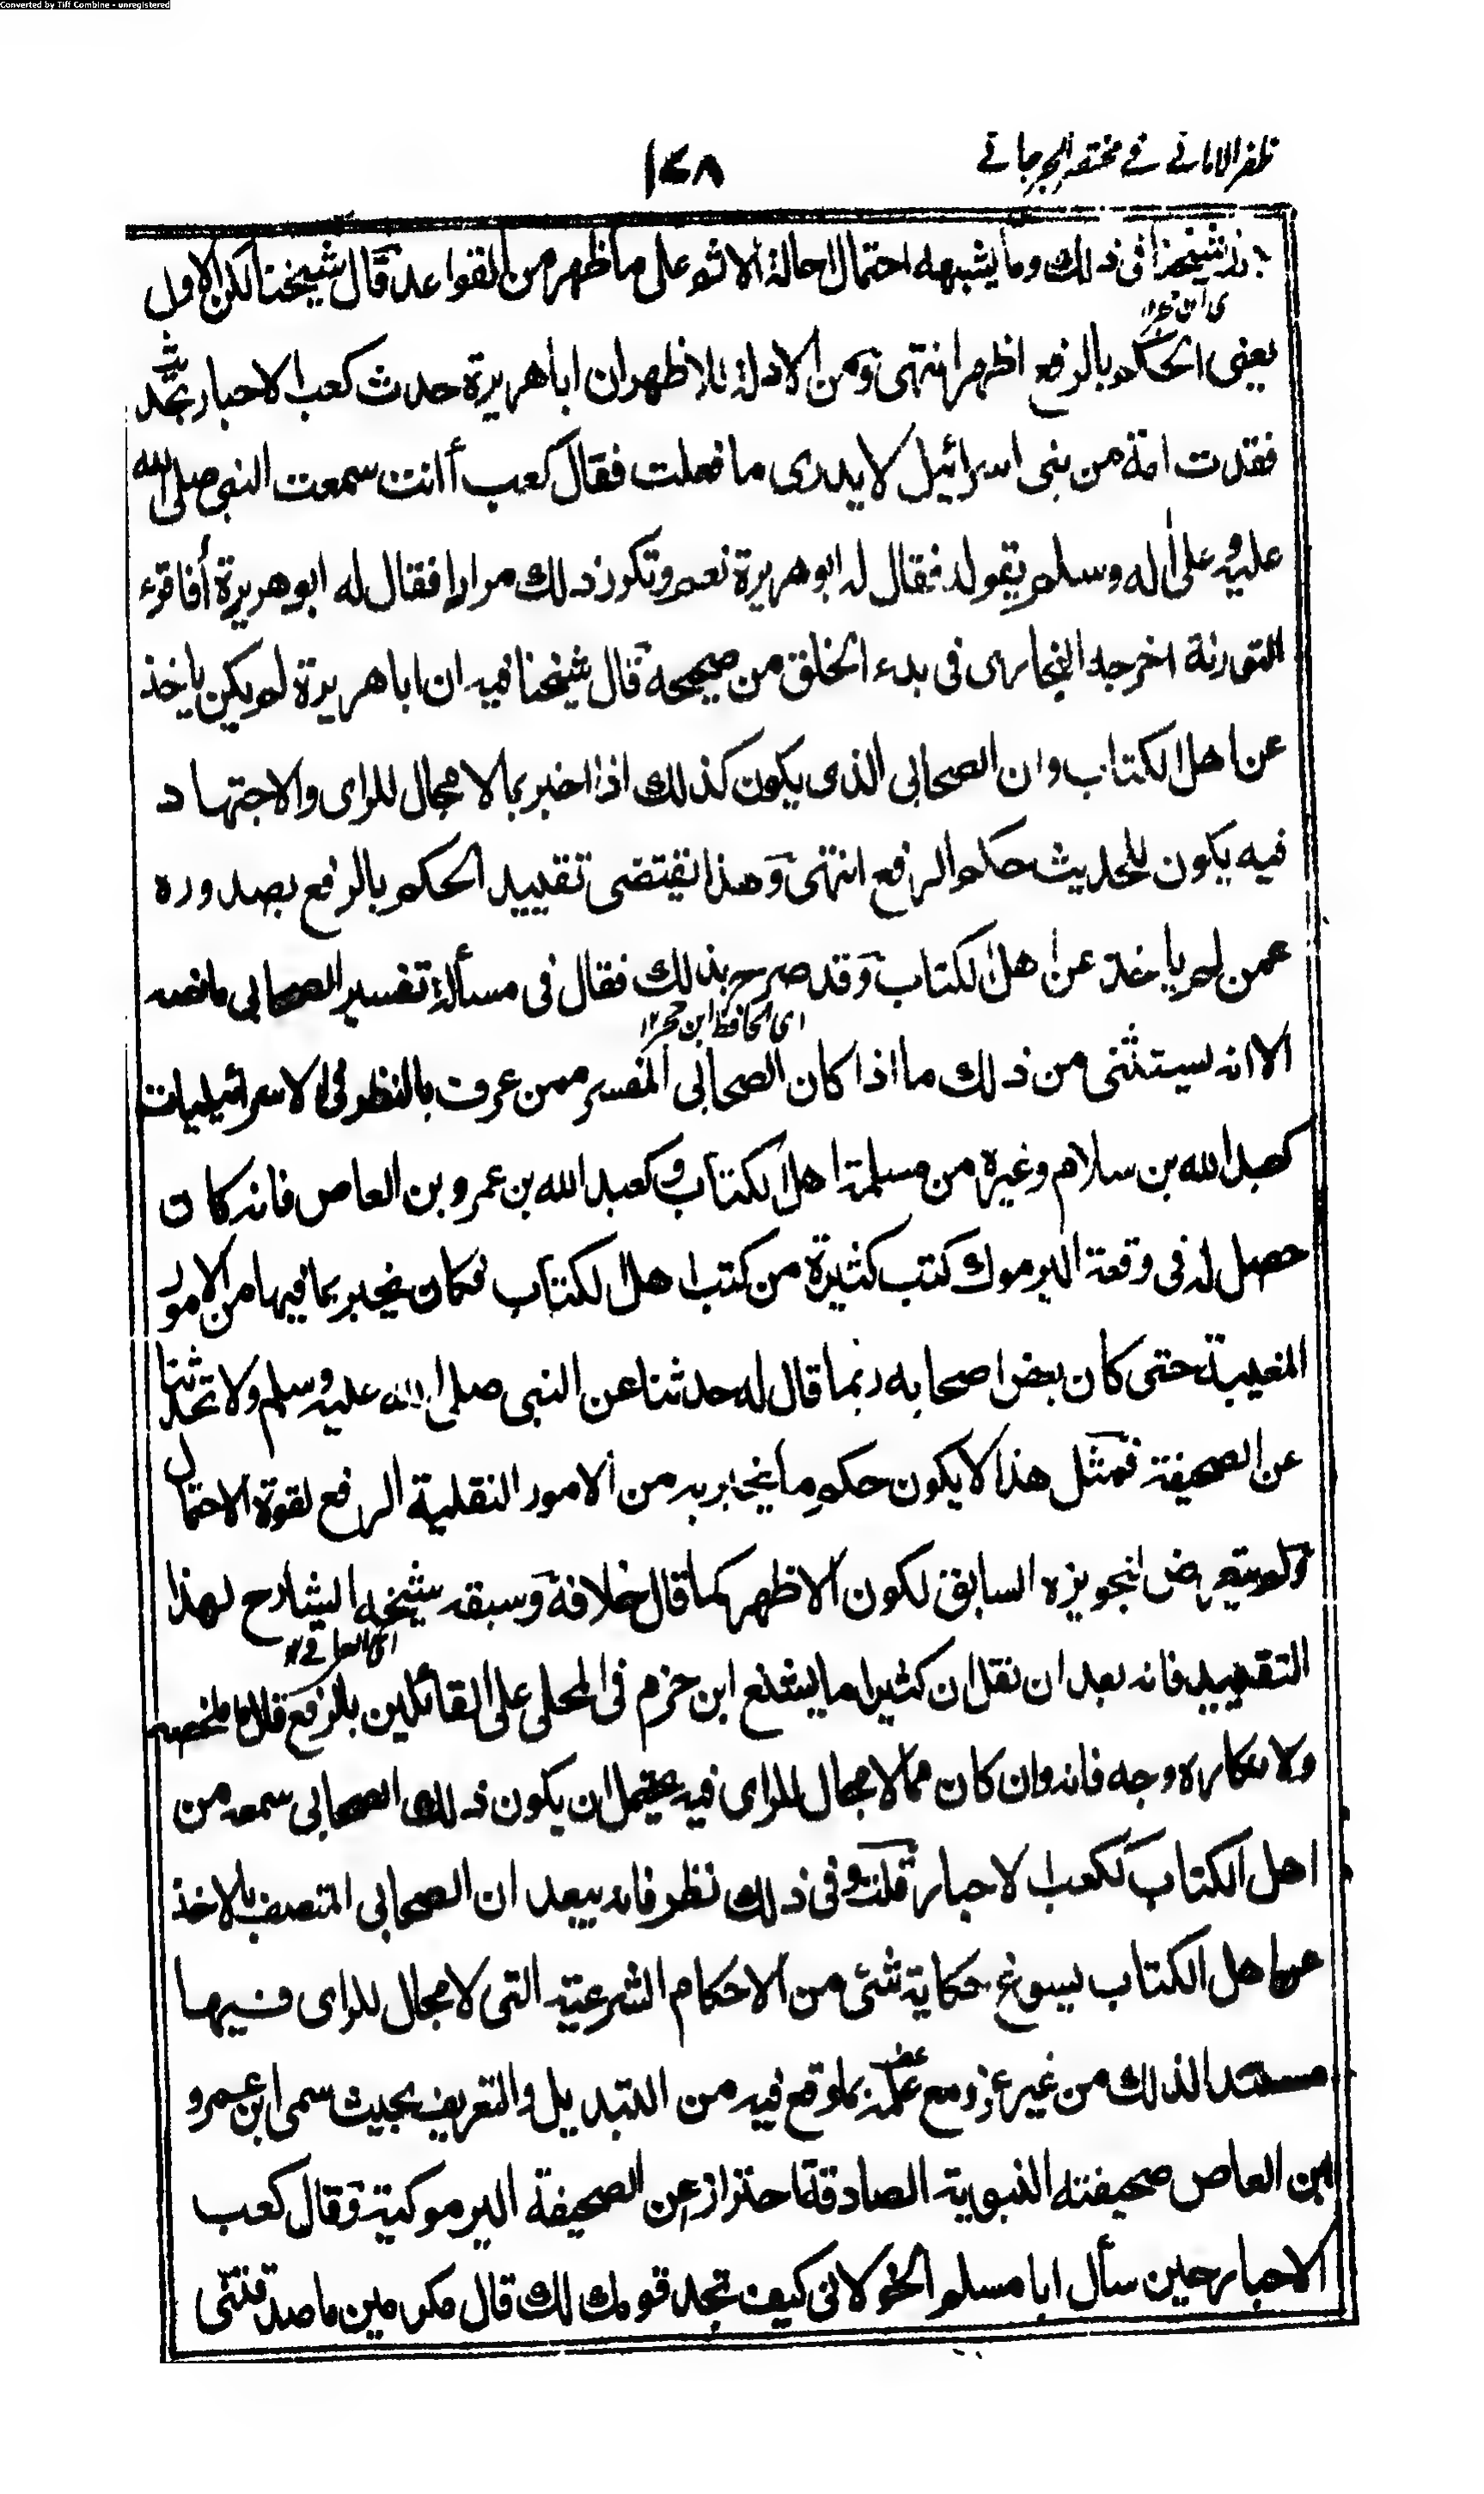 Converted by Tiff Combine - unregistered
ظفر الامانى فى مختصر الجرجانى
١٤٨
شيخنا فى ذلك وما يشبهه احتمال احالة الاثم على ما ظهر من القواعد قال شيخنا لكن الاول
اى ابن حجر ١٢
يعنى الحكم بالرفع اظهر انتهى ومن الادلة للاظهر ان ابا هريرة حدث كعب الاحبار بحديث
فقدت امة من بنى اسرائيل لا يدرى ما فعلت فقال كعب أانت سمعت النبى صلى الله
عليه وعلى اله وسلم يقوله فقال له ابو هريرة نعم وتكرر ذلك مرارا فقال له ابو هريرة أفاقرء
التورىة اخرجه البخارى فى بدء الخلق من صحيحه قال شيخنا فيه ان ابا هريرة لم يكن ياخذ
عن اهل الكتاب وان الصحابى الذى يكون كذلك اذا اخبر بما لا مجال للراى والاجتهاد
فيه يكون للحديث حكم الرفع انتهى وهذا يقتضى تقييد الحكم بالرفع بصدوره
عمن لم ياخذ عن اهل الكتاب وقد صرح بذلك فقال فى مسألة تفسير الصحابى ما نصه
اى الحافظ ابن حجر ١٢
الا انه يستثنى من ذلك ما اذا كان الصحابى المفسر ممن عرف بالنظر فى الاسرائيليات
كعبد الله بن سلام وغيره من مسلمة اهل الكتاب وكعبد الله بن عمرو بن العاص فانه كان
حصل له فى وقعة اليرموك كتب كثيرة من كتب اهل الكتاب فكان يخبر بما فيها من الامور
المغيبة حتى كان بعض اصحابه ربما قال له حدثنا عن النبى صلى الله عليه وسلم ولا تحدثنا
عن الصحيفة فمثل هذا لا يكون حكم ما يخبر به من الامور النقلية الرفع لقوة الاحتمال
ولم يتعرض لتجويزه السابق لكون الاظهر كما قال خلافه وسبقه شيخه الشارح لهذا
اى العراقى ١٢
التقييد فانه بعد ان نقل ان كثيرا ما يشنع ابن حزم فى المحلى على القائلين بالرفع قال ما ملخصه
ولانكاره وجه فانه وان كان مما لا مجال للراى فيه يحتمل ان يكون ذلك الصحابى سمعه من
اهل الكتاب ككعب الاحبار قلت وفى ذلك نظر فانه يبعد ان الصحابى المتصف بالاخذ
عن اهل الكتاب يسوغ حكاية شئ من الاحكام الشرعية التى لا مجال للراى فيها
مستندا لذلك من غير عزو مع علمه بما وقع فيه من التبديل والتحريف بحيث سمى ابن عمرو
ابن العاص صحيفته النبوية الصادقة احترازا عن الصحيفة اليرموكية وقال كعب
الاحبار حين سأل ابا مسلم الخولانى كيف تجد قومك لك قال مكرمين ما صدقتنى